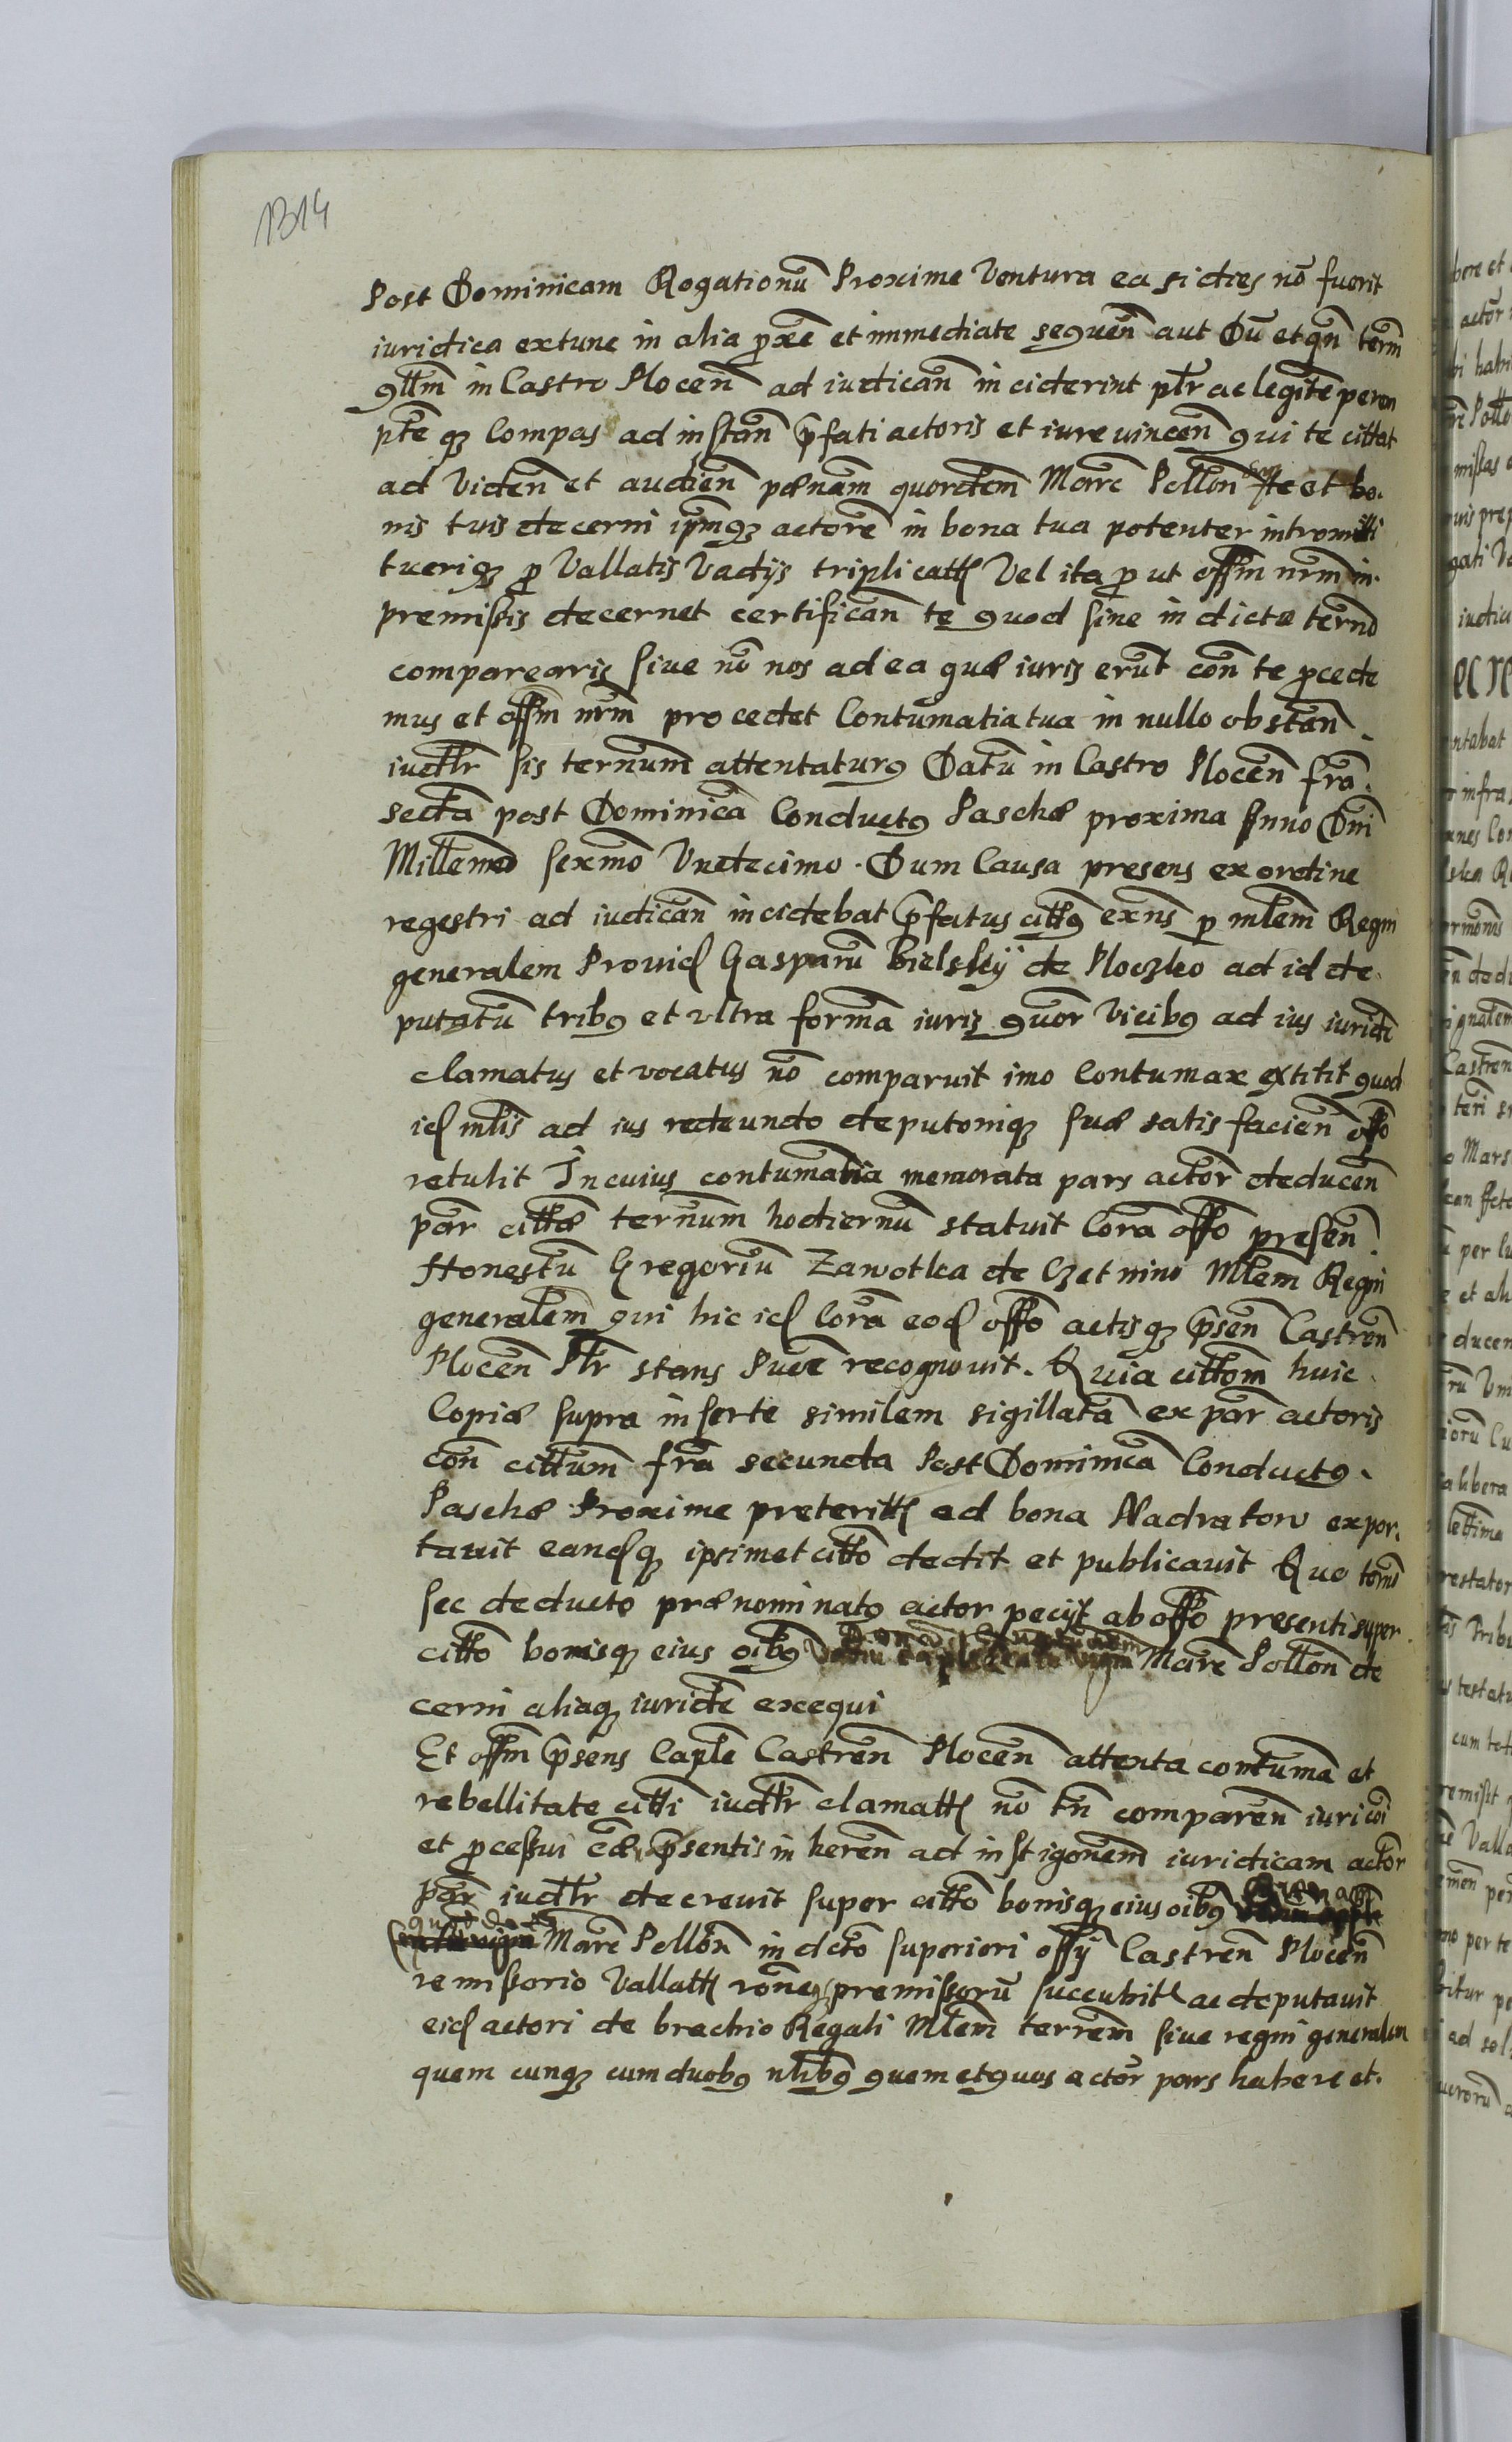 1314
Post Dominicam Rogationũ Proxime Ventura ea si dies nõ fuerit
iuridica extunc in alia p̱xẽ et immediate sequeñ aut Dũ et qñ term̃
in Castro Ploceñ ad iudicañ inciderint pl̃r ac legitẽ perem
ptẽ qȝ Compas ad instañ p̃fati actoris et iure vinceñ qui te cittat
ad Videñ et audieñ pænam̃ quordem̃ Marc̃ Polloñ te et bo.
nis tuis decerni ipm̃qȝ actorẽ in bona tua potenter intromitti
tueriqȝ p̱ Vallatis Vadijs triplicatt Vel ita p̱ ut offm̃ nrm̃ in
premissis decernet certificañ te quod siue in dicto term̃o
comparearis siue nõ nos ad ea quæ iuris erũt coñ te p̱cede
mus et offm̃ nrm̃ procedet Contumatia tua in nullo obstañ.
iudl̃r sis ternum̃ attentaturꝰ Datũ in Castro Ploceñ fr̃a.
secda post Dominicã Conductꝰ Paschæ proxima Anno Dñi
Millem̃o sexm̃o Undecimo. Dum Causa presens ex ordine
regestri ad iudicañ incidebat p̃fatus cittꝰ exñs p̱ mlem̃ Regni
generalem Prouid Gasparũ Bielskÿ de Ploczko ad id de
putatũ tribꝰ et ultra formã iuris quor̃ Vicibꝰ ad ius iuridc̃
clamatus et vocatus nõ comparuit imo Contumax extitit quod
id mlis̃ ad ius redeundo deputoniqȝ suæ satisfacieñ offo
retulit In cuius contumatia memorata pars actor̃ deduceñ
par̃ cittæ ternum̃ hodiernũ statuit Corã offo preseñ
Honestũ Gregoriũ Zawotka de Czetnino Mlem̃ Regni
generalem̃ qui hic id Corã eod offo actisqȝ p̃señ Castreñ
Ploceñ Pl̃r stans recognouit. Quia cittom̃ huic
Copiæ supra inserte similem sigillatã ex par̃ actoris
coñ cittum̃ fr̃a secunda Post Dominicã Conductꝰ.
Paschæ Proxime preteritt ad bona Nadratow expor.
tauit eandqȝ ipsimet citto dedit et publicauit Quo term̃o
sec deducto prænominatꝰ actor pecijt ab offo presenti super
citto bonisqȝ eius oib̃ꝰ Marc̃ Polloñ de
cerni aliaqȝ iuridc̃ excequi
Et offm̃ p̃sens Caplẽ Castreñ Ploceñ attenta contumã et
rebellitate citti iudl̃r clamatt nõ tñ compareñ iuri
et p̱cessui cæ p̃sentis inhereñ ad instigonem̃ iuridicam actor̃
par̃ iudl̃r decreuit super citto bonisqȝ eius oib̃ꝰ
Marc̃ Polloñ in dcto superiori offÿ Castreñ Ploceñ
remissorio Vallatt rõne premissorũ succubit ac deputauit
eid actori de brachio Regali Mlem̃ terrem̃ siue regni generalem
quem cunqȝ cum duobꝰ nlibꝰ quem et quos actor̃ pars habere et.